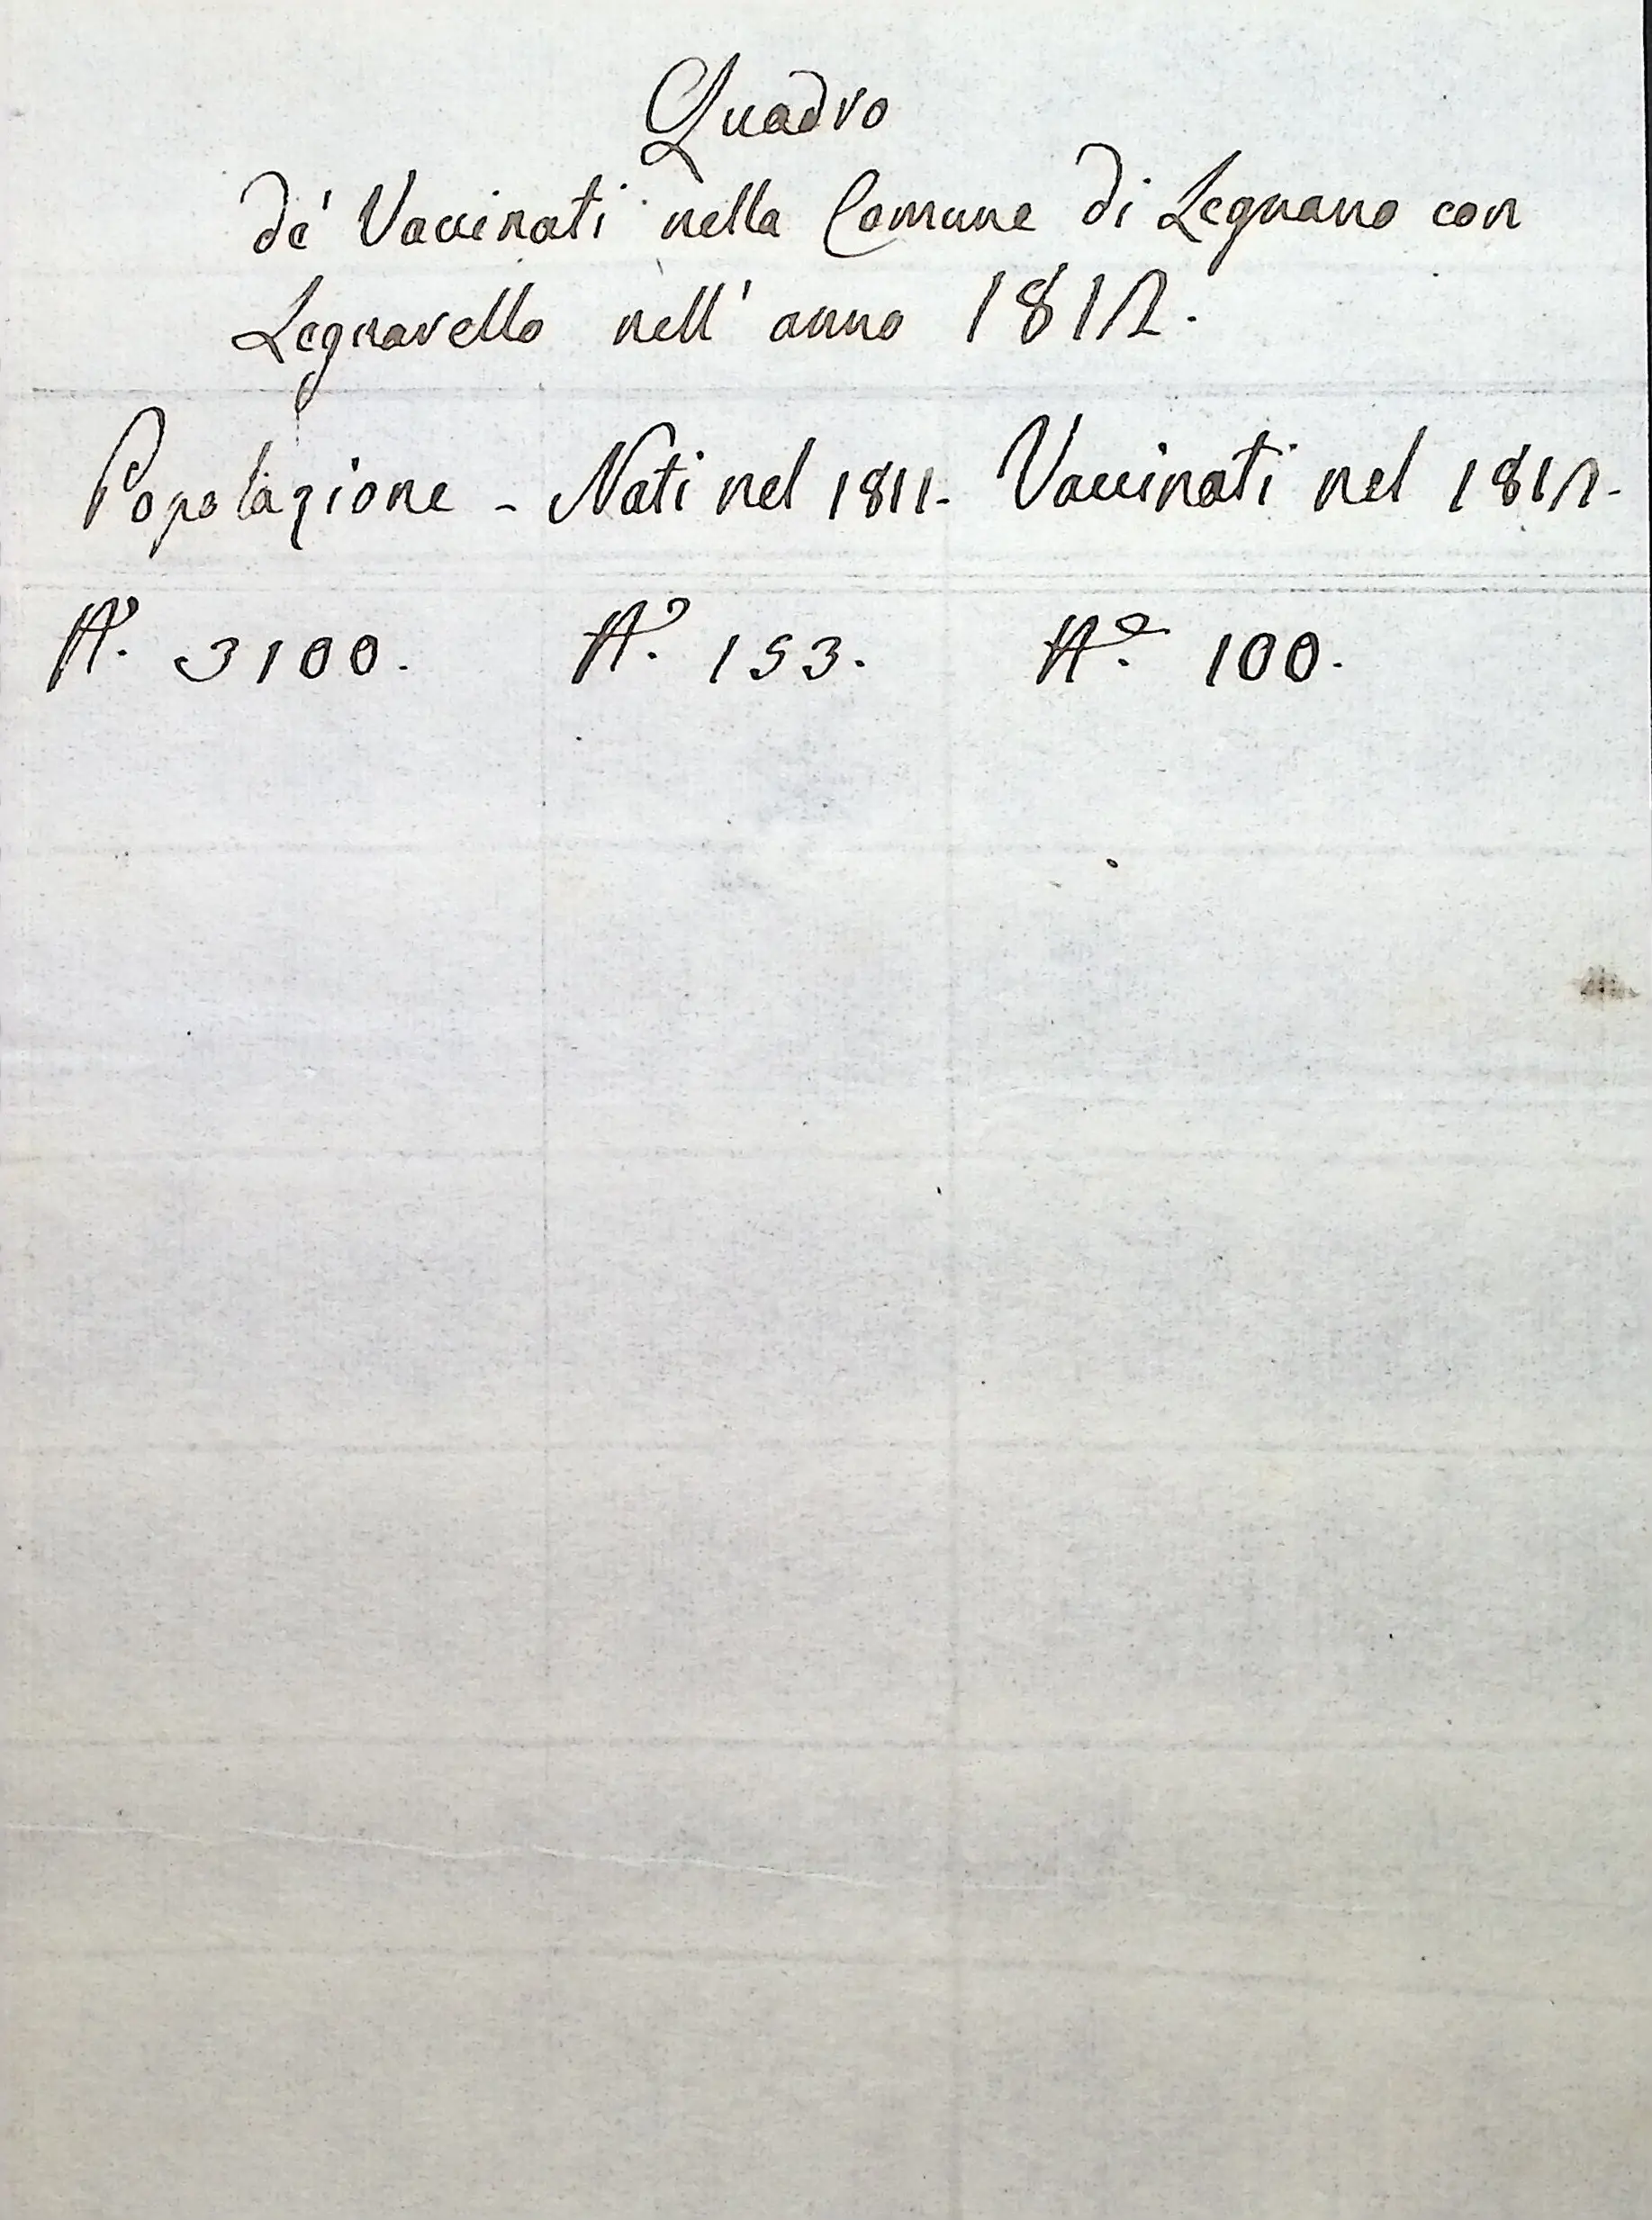 Quadro
de' Vaccinati nella Comune di Legnano con
Legnarello nell' anno 1812.
Popolazione - Nati nel 1811. Vaccinati nel 1812.
N.º 3100. N.º 153. N.º 100.